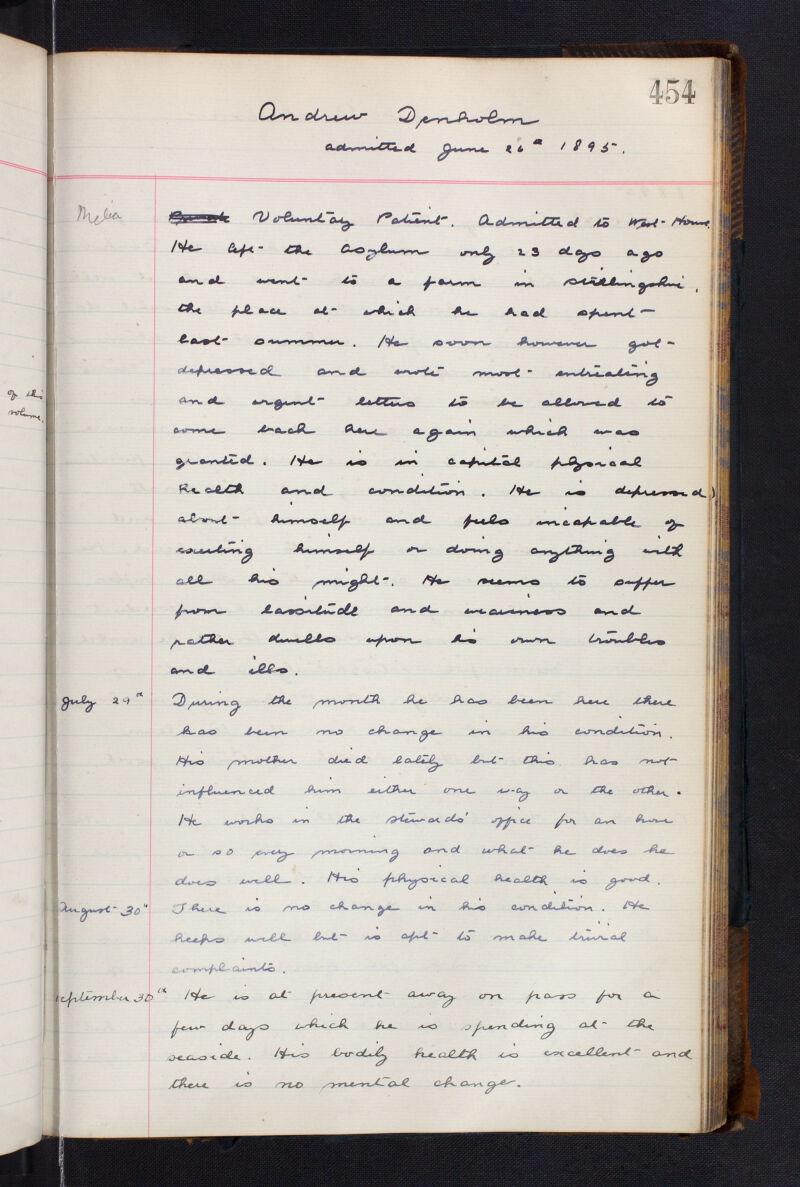 454
Andrew Denholm
admitted June 26th 1895.
Melia
Voluntary Patient. Admitted to West House.
He left the asylum only 23 days ago
and went to a farm in Stirlingshire,
the place at which he had spent
last summer. He soon however got
depressed and wrote most entreating
and urgent letters to be allowed to
come back here again which was
granted. He is in capital physical
health and condition. He is depressed
about himself and feels incapable of
exerting himself or doing anything with
all his might. He seems to suffer
from lassitude and weariness and
rather dwells upon his own troubles
and ills.
July 29th During the month he has been here there
has been no change in his condition.
His mother died lately but this has not
influenced him either one way or the other.
He works in the stewards' office for an hour
or so every morning and what he does he
does well. His physical health is good.
August 30th There is no change in his condition. He
keeps well but is apt to make trivial
complaints.
September 30th He is at present away on pass for a
few days which he is spending at the
seaside. His bodily health is excellent and
there is no mental change.
of this
volume.